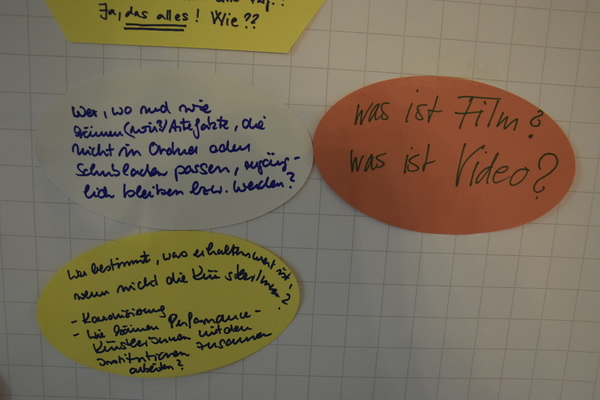 Ja, das alles! Wie??
Wer, wo und wie
können (wir?) Artefakte, die
nicht in Ordner oder
Schubladen passen, zugäng-
lich bleiben bzw. werden?
was ist Film?
was ist Video?
Wer bestimmt, was erhaltenswert ist,
wenn nicht die Künstler/innen?
- Kanonisierung
- Wie können Performance-
Künstlerinnen mit den
Institutionen zusammen
arbeiten?